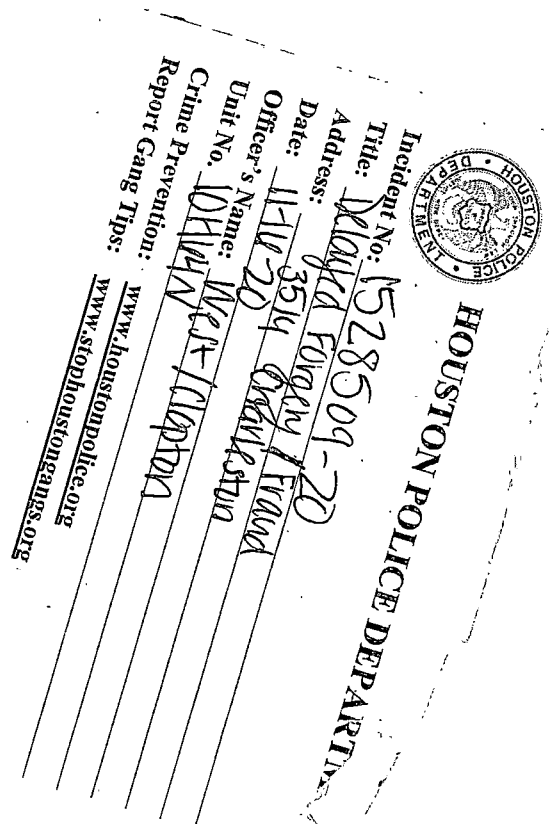 HOUSTON POLICE • DEPARTMENT •
HOUSTON POLICE DEPARTM
Incident No: 1528509-20
Title: Delayed Forgery / Fraud
Address: 3514
Date: 11-16-20
Officer's Name: West / Clopton
Unit No.
Crime Prevention: www.houstonpolice.org
Report Gang Tips: www.stophoustongangs.org